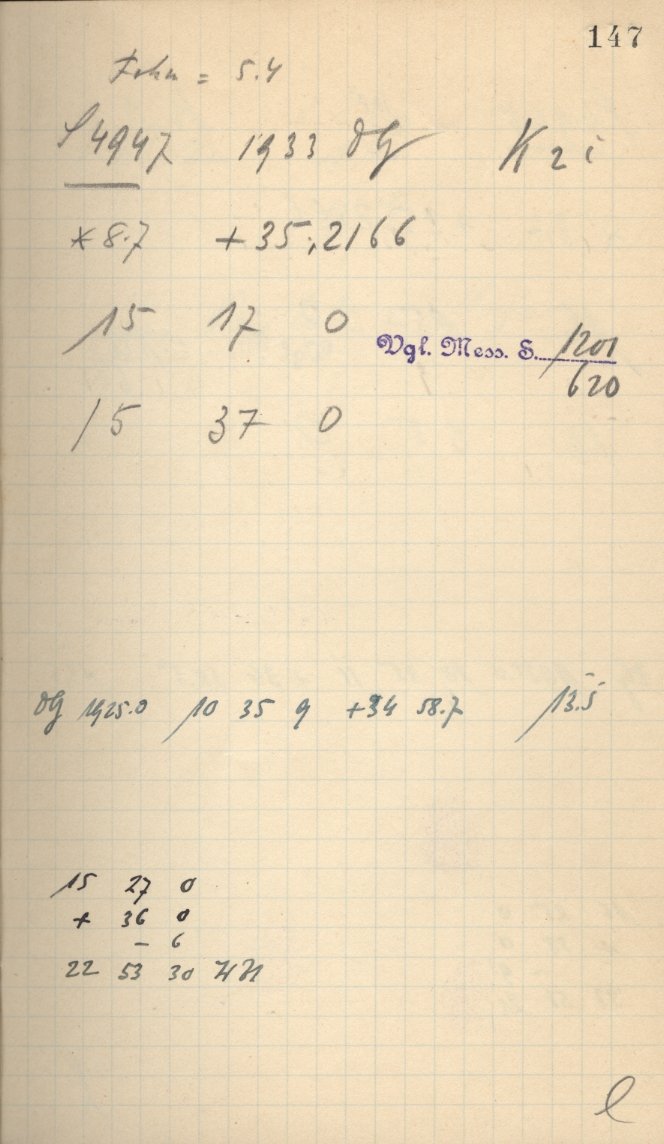 147
= 5.4
S 4947 1933 dG K 2 i
* 8.7 + 35;2166
15 17 0
Vgl. Mess. S. 1201
620
15 37 0
dG 1925.0 10 35 9 +34 58.7 13.5
15 27 0
+ 36 0
– 6
22 53 30
l